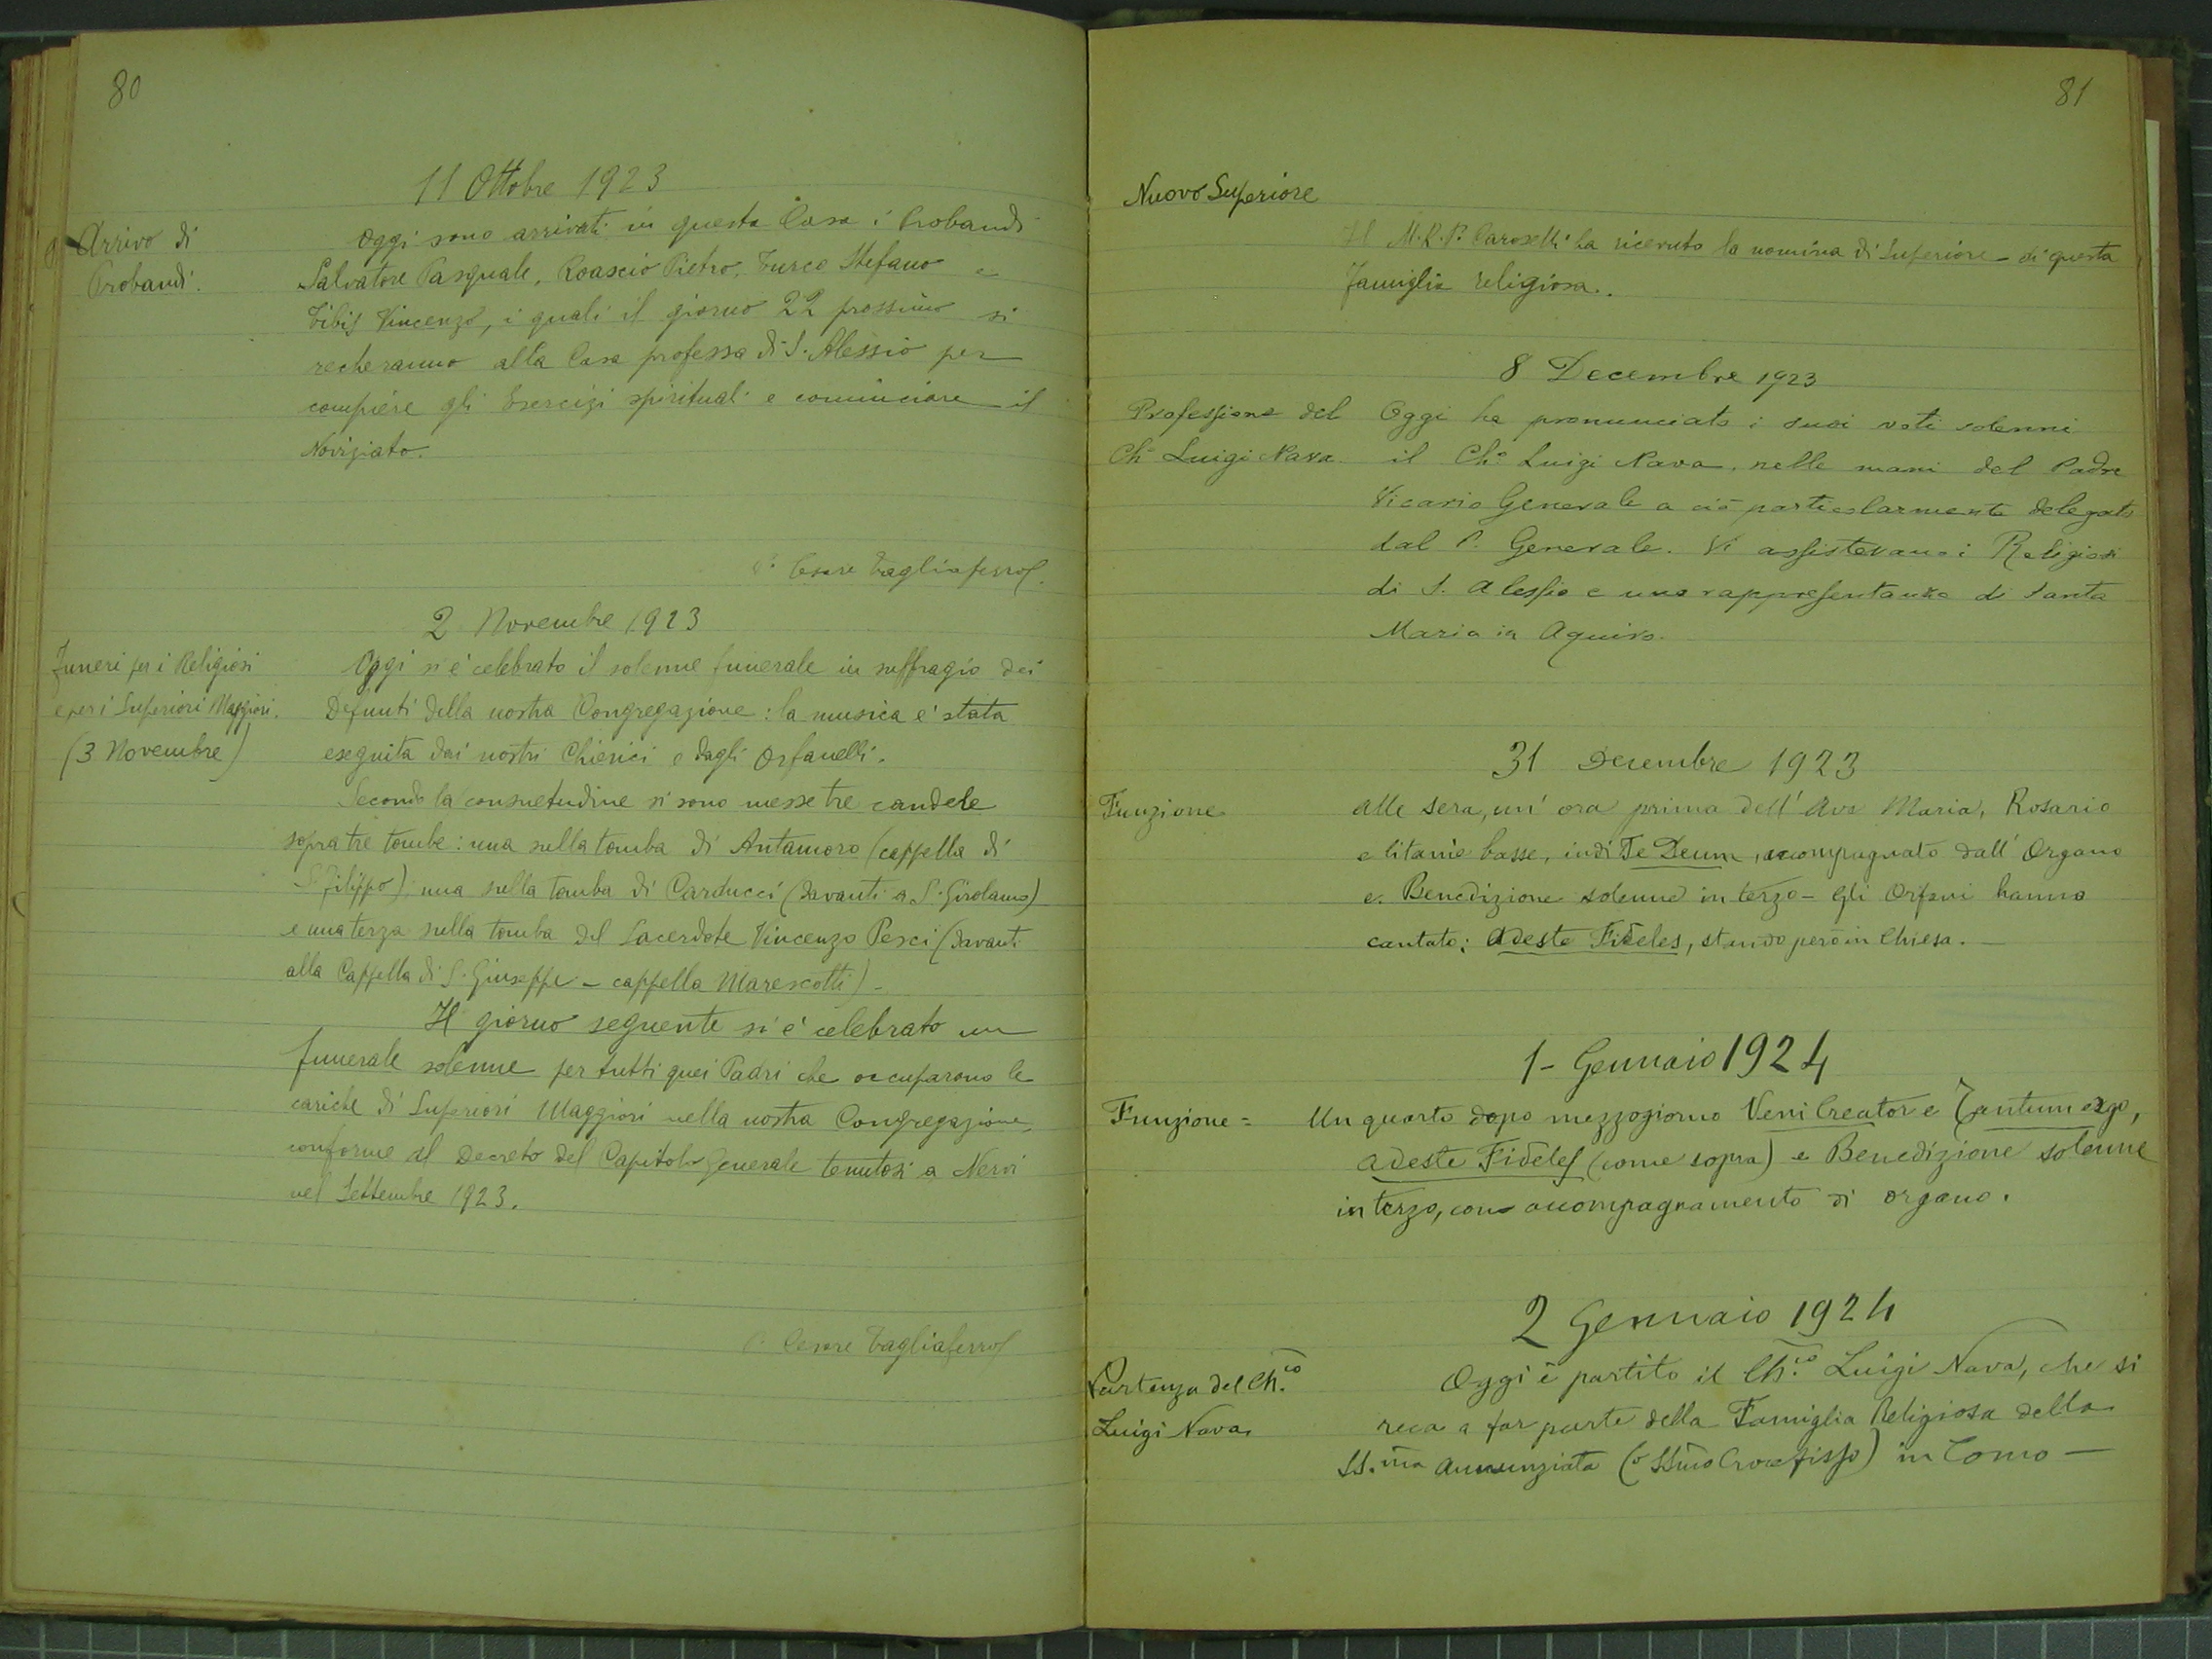 80
11 Ottobre 1923
Arrivo di
Probandi.
Oggi sono arrivati in questa Casa i Probandi
Salvatore Pasquale, Roascio Pietro, Turco Stefano e
Vincenzo, i quali il giorno 22 prossimo si
recheranno alla Casa professa di S. Alessio per
compiere gli Esercizi spirituali e cominciare il
Noviziato.
P. Cesare Tagliaferro
2 Novembre 1923
Funeri per i Religiosi
e per i Superiori Maggiori.
(3 Novembre)
Oggi si è celebrato il solenne funerale in suffragio dei
Defunti della nostra Congregazione: la musica è stata
eseguita dai nostri Chierici e dagli Orfanelli.
Secondo la consuetudine si sono messe tre candele
sopra tre tombe: una sulla tomba di Antamoro (cappella di
S. Filippo); una sulla tomba di Carducci (davanti a S. Girolamo)
e una terza sulla tomba del Sacerdote Vincenzo Pesci (davanti
alla Cappella di S. Giuseppe - cappella Marescotti) -
Il giorno seguente si è celebrato un
funerale solenne per tutti quei Padri che occuparono le
cariche di Superiori Maggiori nella nostra Congregazione,
conforme al Decreto del Capitolo Generale tenutosi a Nervi
nel Settembre 1923.
P. Cesare Tagliaferro
81
Nuovo Superiore
Il M.R.P. Caroselli ha ricevuto la nomina di Superiore di questa
famiglia religiosa.
8 Decembre 1923
Professione del
Ch.o Luigi Nava.
Oggi ha pronunciato i suoi voti solenni
il Ch.o Luigi Nava, nelle mani del Padre
Vicario Generale a ciò particolarmente delegato
dal P. Generale. Vi assistevano i Religiosi
di S. Alessio e una rappresentanza di Santa
Maria in Aquiro.
31 Decembre 1923
Funzione
Alle sera, un' ora prima dell' Ave Maria, Rosario
e litanie basse, indi Te Deum, accompagnato dall' Organo
e Benedizione solenne in terzo - Gli Orfani hanno
cantato: Adeste Fideles, stando però in Chiesa.
1 - Gennaio 1924
Funzione =
Un quarto dopo mezzogiorno Veni Creator e Tantum ergo,
Adeste Fideles (come sopra) e Benedizione solenne
in terzo, con accompagnamento di organo.
2 Gennaio 1924
Partenza del Ch.co
Luigi Nava
Oggi è partito il Ch.co Luigi Nava, che si
reca a far parte della Famiglia Religiosa della
SS.ma Annunziata (o SSmo Crocefisso) in Como -